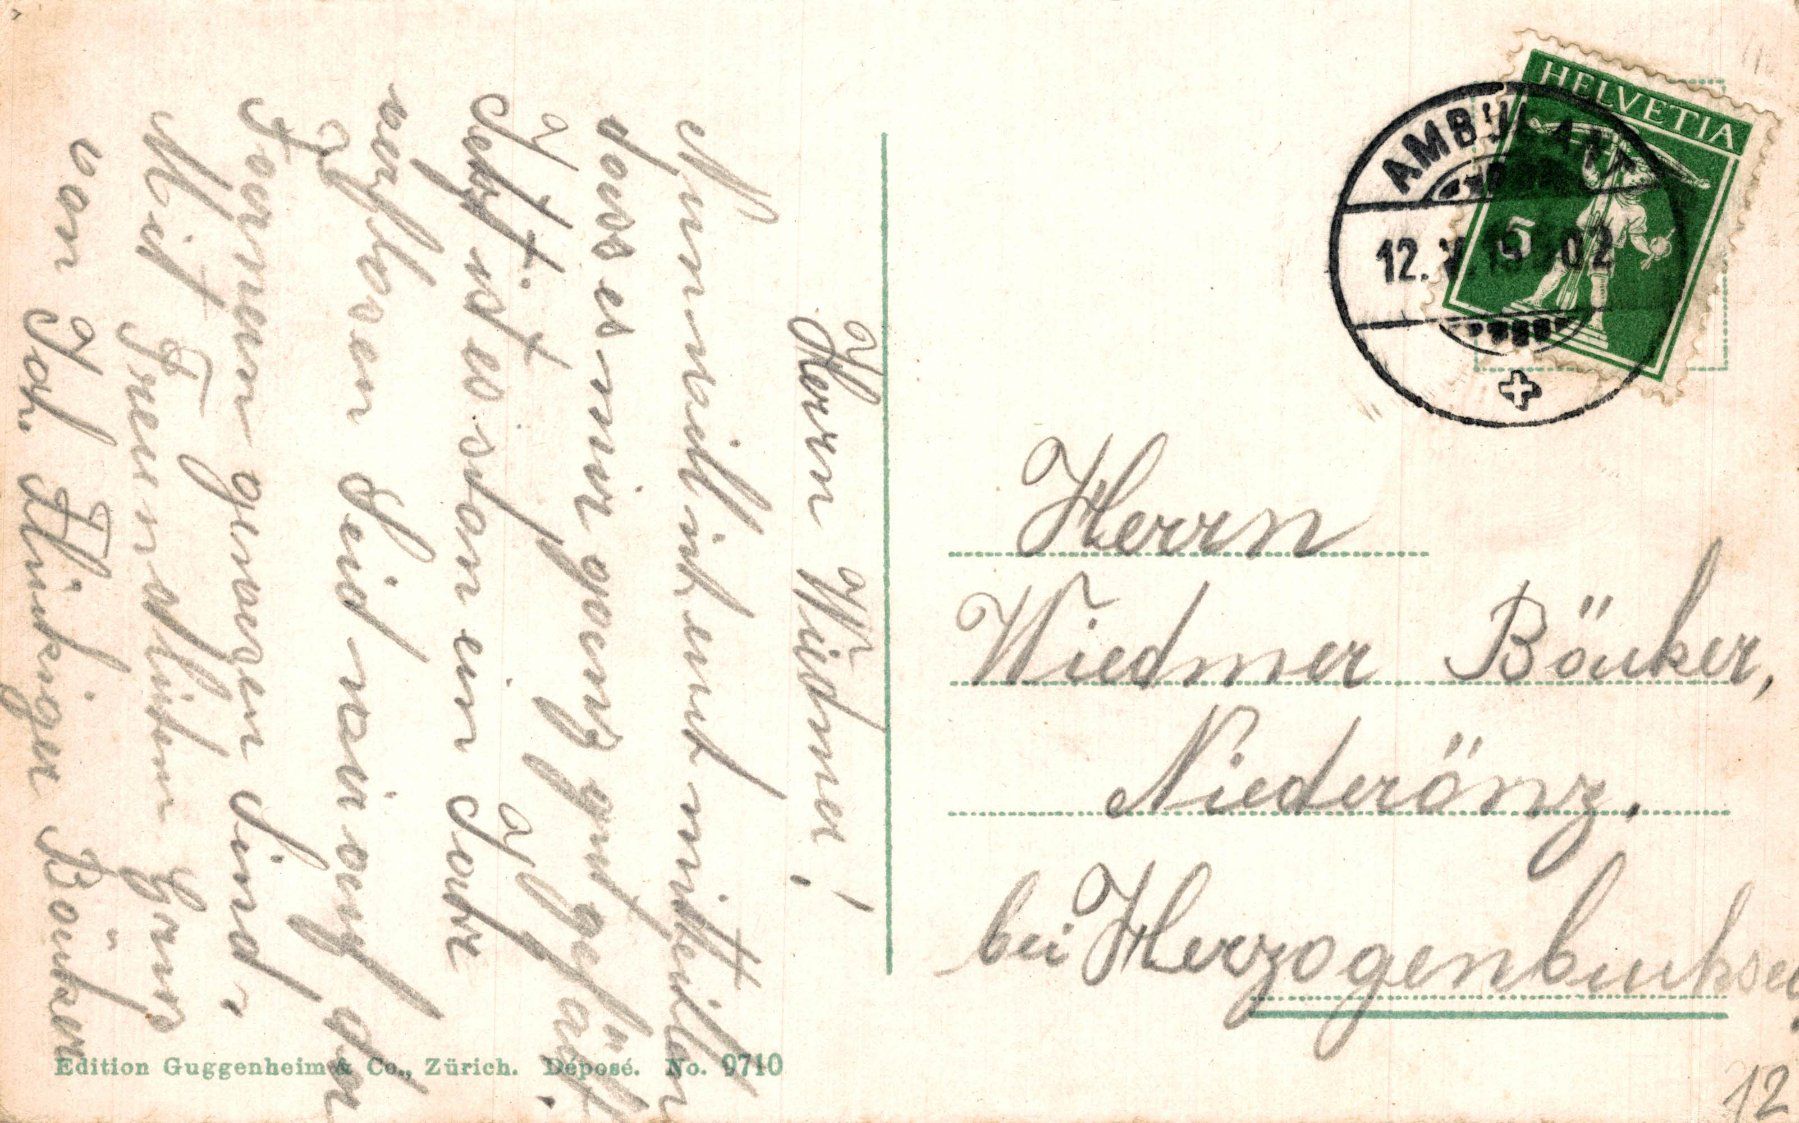 Herrn Widmer!
Nun will ich euch mitteilen
dass es mir ganz gut gefällt.
Jetzt ist es schon ein Jahr
verflossen seid wir auf der
Farnern gewesen sind.
Mit Freundlichem Gruss
von Joh. Flückiger Bäcker
HELVETIA
5
AMBULANT
12. V. 19 02
Herrn
Wiedmer Bäcker,
Niederönz,
bei Herzogenbuchsee
12
Edition Guggenheim & Co., Zürich. Déposé. No. 9710